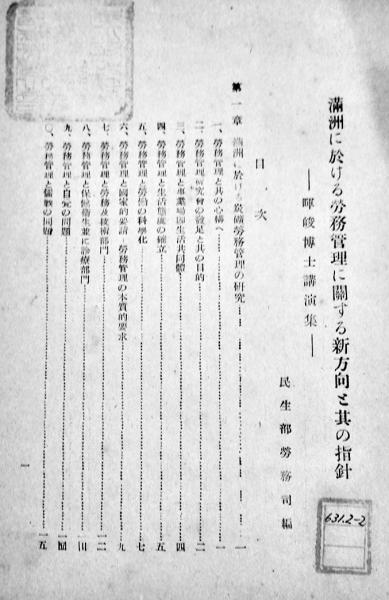 滿洲に於ける勞務管理に關する新方向と其の指針
──暉峻博士講演集──
民生部勞務司編
目次
第一章 滿洲に於ける炭礦勞務管理の研究……一
一、勞務管理と其の心構へ……一
二、勞務管理研究會の發足と其の目的……二
三、勞務管理と事業場卽生活共同體……四
四、勞務管理と生活態樣の確立……五
五、勞務管理と勞働の科學化……七
六、勞務管理と國家的要請 勞務管理の本質的要求……九
七、勞務管理と勞務及技術部門……一二
八、勞務管理と保健衞生並に診療部門……一四
九、勞務管理と自覺の問題……一四
一〇、勞務管理と備數の問題……一五
一
631.2-2